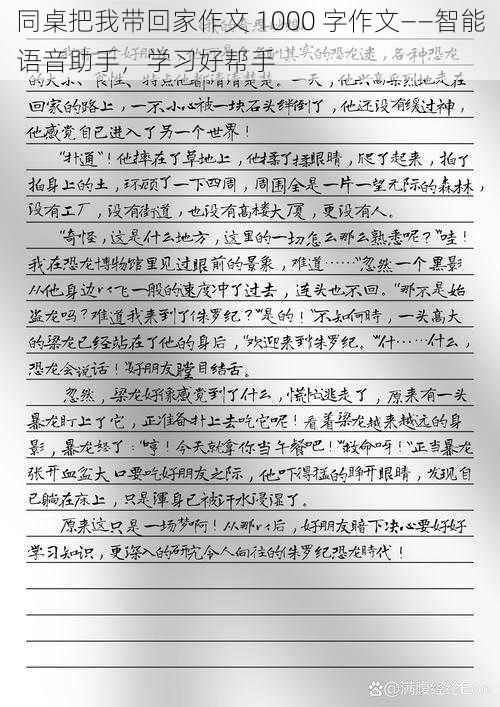 同桌把我带回家作文 1000 字作文——智能
语音助手，学习好帮手
的大小、食性、特点他都清清楚楚。一天，他兴高采烈地走在
回家的路上，一不小心被一块石头绊倒了，他还没有缓过神，
他感觉自己进入了另一个世界！
“扑通”！他摔在了草地上，他揉了揉眼睛，爬了起来，拍了
拍身上的土，环顾了一下四周，周围全是一片一望无际的森林，
没有工厂，没有街道，也没有高楼大厦，更没有人。
“奇怪，这是什么地方，这里的一切怎么那么熟悉呢？”哇！
我在恐龙博物馆里见过眼前的景象，难道……”忽然一个黑影
从他身边以飞一般的速度冲了过去，连头也不回。“那不是始
盗龙吗？难道我来到了侏罗纪？”是的！“不知何時，一头高大
的梁龙已经站在了他的身后，“欢迎来到侏罗纪。”什……什么，
恐龙会说话！”好朋友瞠目结舌。
忽然，梁龙好像感觉到了什么，慌忙逃走了，原来有一头
暴龙盯上了它，正准备扑上去吃它呢！看着梁龙越来越远的身
影，暴龙怒了：“哼！今天就拿你当午餐吧！”“救命呀！”正当暴龙
张开血盆大口要吃好朋友之际，他吓得猛的睁开眼睛，发现自
己躺在床上，只是浑身已被汗水浸湿了。
原来这只是一场梦啊！从那以后，好朋友暗下决心要好好
学习知识，更深入的研究令人向往的侏罗纪恐龙時代！